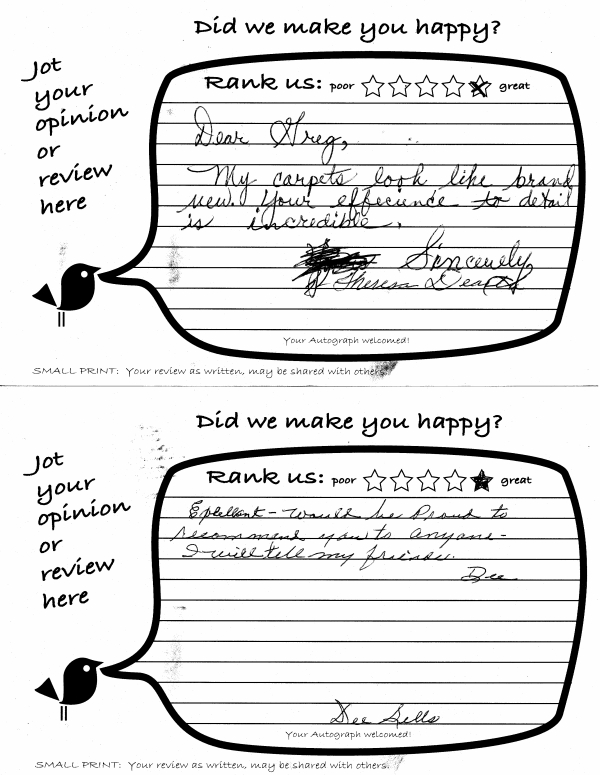 Did we make you happy?
Jot
your
opinion
or
review
here
Rank us: poor great
Dear Greg,
My carpets look like brand
new. Your effecience to detail
is incredible.
Sincerely,
Theresa
Your Autograph welcomed!
SMALL PRINT: Your review as written, may be shared with others.
Did we make you happy?
Jot
your
opinion
or
review
here
Rank us: poor great
Would be Proud to
recommend you to anyone-
I will tell my friends.
Dee
Dee Sells
Your Autograph welcomed!
SMALL PRINT: Your review as written, may be shared with others.